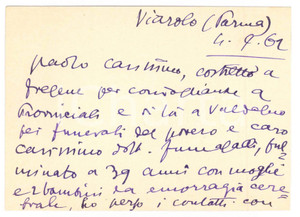 Viarolo (Parma)
4. 9. 62
paolo carissimo, costretto a
per
Provinciali e
per funerali del povero e caro
carissimo dott. Fumagalli, ful
minato a 39 anni con moglie
e bambini da emorragia cere
brale, ho perso i contatti con